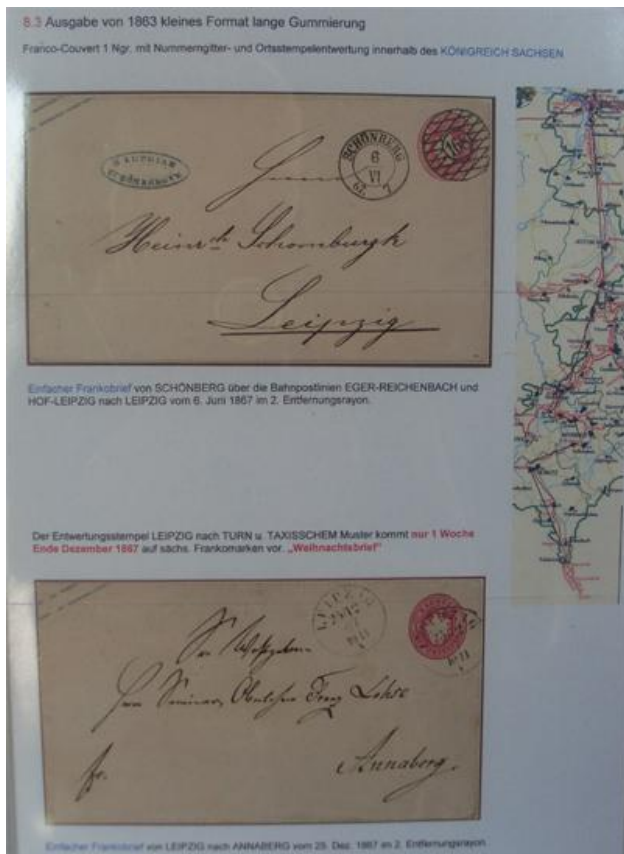 8.3 Ausgabe von 1863 kleines Format lange Gummierung
Franco-Couvert 1 Ngr. mit Nummerngitter- und Ortsstempelentwertung innerhalb des KÖNIGREICH SACHSEN
SCHÖNBERG
6
VI
67
Herrn
Heinrch Schomburgk
Leipzig
Einfacher Frankobrief von SCHÖNBERG über die Bahnpostlinien EGER-REICHENBACH und
HOF-LEIPZIG nach LEIPZIG vom 6. Juni 1867 im 2. Entfernungsrayon.
Der Entwertungsstempel LEIPZIG nach TURN u. TAXISSCHEM Muster kommt nur 1 Woche
Ende Dezember 1867 auf sächs. Frankomarken vor. „Weihnachtsbrief"
LEIPZIG
Lohse
fr.
Annaberg.
Einfacher Frankobrief von LEIPZIG nach ANNABERG vom Dez. 1867 im 2. Entfernungsrayon.